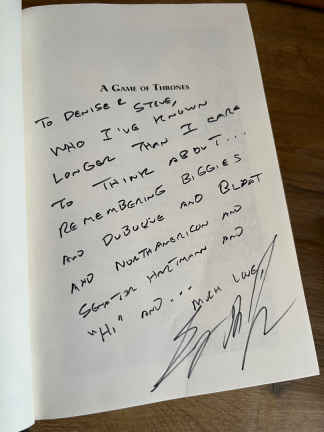 A GAME OF THRONES
TO DENISE & STEVE,
WHO I'VE KNOWN
LONGER THAN I CARE
TO THINK ABOUT...
REMEMBERING BIGGIES
AND DUBUQUE AND
AND NORTHAMERICON AND
SENATOR HARTMANN AND
"HI" AND... MUCH LOVE,